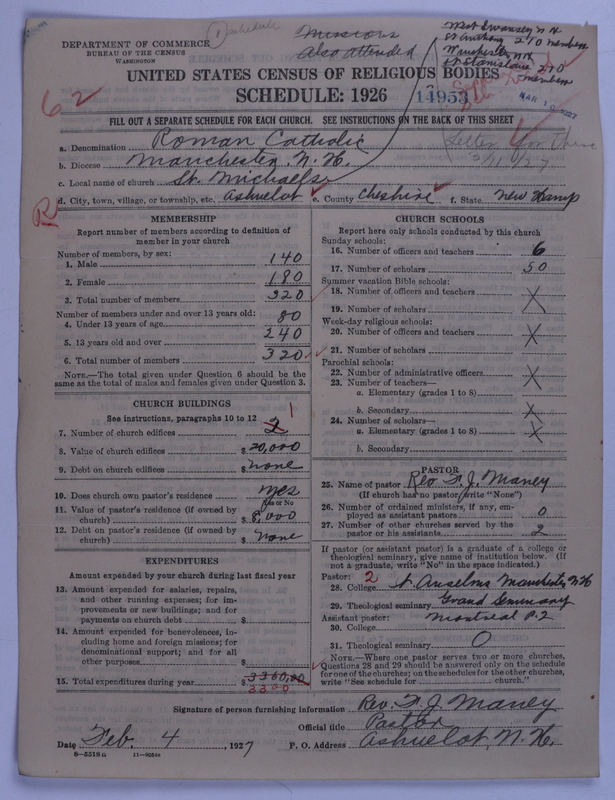 1 schedule
Missions
also attended
West Swanzey N H
St Anthony 210 members
Winchester, N.H.
St Stanislaus 270
members
DEPARTMENT OF COMMERCE
BUREAU OF THE CENSUS
WASHINGTON
UNITED STATES CENSUS OF RELIGIOUS BODIES
SCHEDULE: 1926
62
14953
MAR 10 1927
FILL OUT A SEPARATE SCHEDULE FOR EACH CHURCH. SEE INSTRUCTIONS ON THE BACK OF THIS SHEET
a. Denomination Roman Catholic
Letter for these
b. Diocese Manchester, N. H.
c. Local name of church St. Michaels
d. City, town, village, or township, etc. Ashuelot e. County Cheshire f. State New Hamp
R
MEMBERSHIP
Report number of members according to definition of
member in your church
Number of members, by sex:
1. Male 140
2. Female 180
3. Total number of members 320
Number of members under and over 13 years old:
4. Under 13 years of age 80
5. 13 years old and over 240
6. Total number of members 320
NOTE.—The total given under Question 6 should be the
same as the total of males and females given under Question 3.
CHURCH BUILDINGS
See instructions, paragraphs 10 to 12
7. Number of church edifices 2 1
8. Value of church edifices $ 20,000
9. Debt on church edifices $ none
10. Does church own pastor's residence yes
Yes or No
11. Value of pastor's residence (if owned by
church) $ 8,000
12. Debt on pastor's residence (if owned by
church) $ none
EXPENDITURES
Amount expended by your church during last fiscal year
13. Amount expended for salaries, repairs,
and other running expenses; for im-
provements or new buildings; and for
payments on church debt $
14. Amount expended for benevolences, in-
cluding home and foreign missions; for
denominational support; and for all
other purposes $
15. Total expenditures during year $ 3360,00
3300
CHURCH SCHOOLS
Report here only schools conducted by this church
Sunday schools:
16. Number of officers and teachers 6
17. Number of scholars 50
Summer vacation Bible schools:
18. Number of officers and teachers X
19. Number of scholars
Week-day religious schools:
20. Number of officers and teachers X
21. Number of scholars
Parochial schools:
22. Number of administrative officers X
23. Number of teachers—
a. Elementary (grades 1 to 8)
b. Secondary X
24. Number of scholars—
a. Elementary (grades 1 to 8) X
b. Secondary
PASTOR
25. Name of pastor Rev. F. J. Maney
(If church has no pastor, write "None")
26. Number of ordained ministers, if any, em-
ployed as assistant pastors 0
27. Number of other churches served by the
pastor or his assistants 2
If pastor (or assistant pastor) is a graduate of a college or
theological seminary, give name of institution below. (If
not a graduate, write "No" in the space indicated.)
Pastor: 2
28. College St. Anselms Manchester, N H
29. Theological seminary Grand Seminary
Assistant pastor: Montreal P. 2
30. College
31. Theological seminary 0
NOTE.—Where one pastor serves two or more churches,
Questions 28 and 29 should be answered only on the schedule
for one of the churches; on the schedules for the other churches,
write "See schedule for church."
Signature of person furnishing information Rev. F. J. Maney
Official title Pastor
Date Feb. 4, 1927 P. O. Address Ashuelot, N. H.
8—5518a 11—9954a